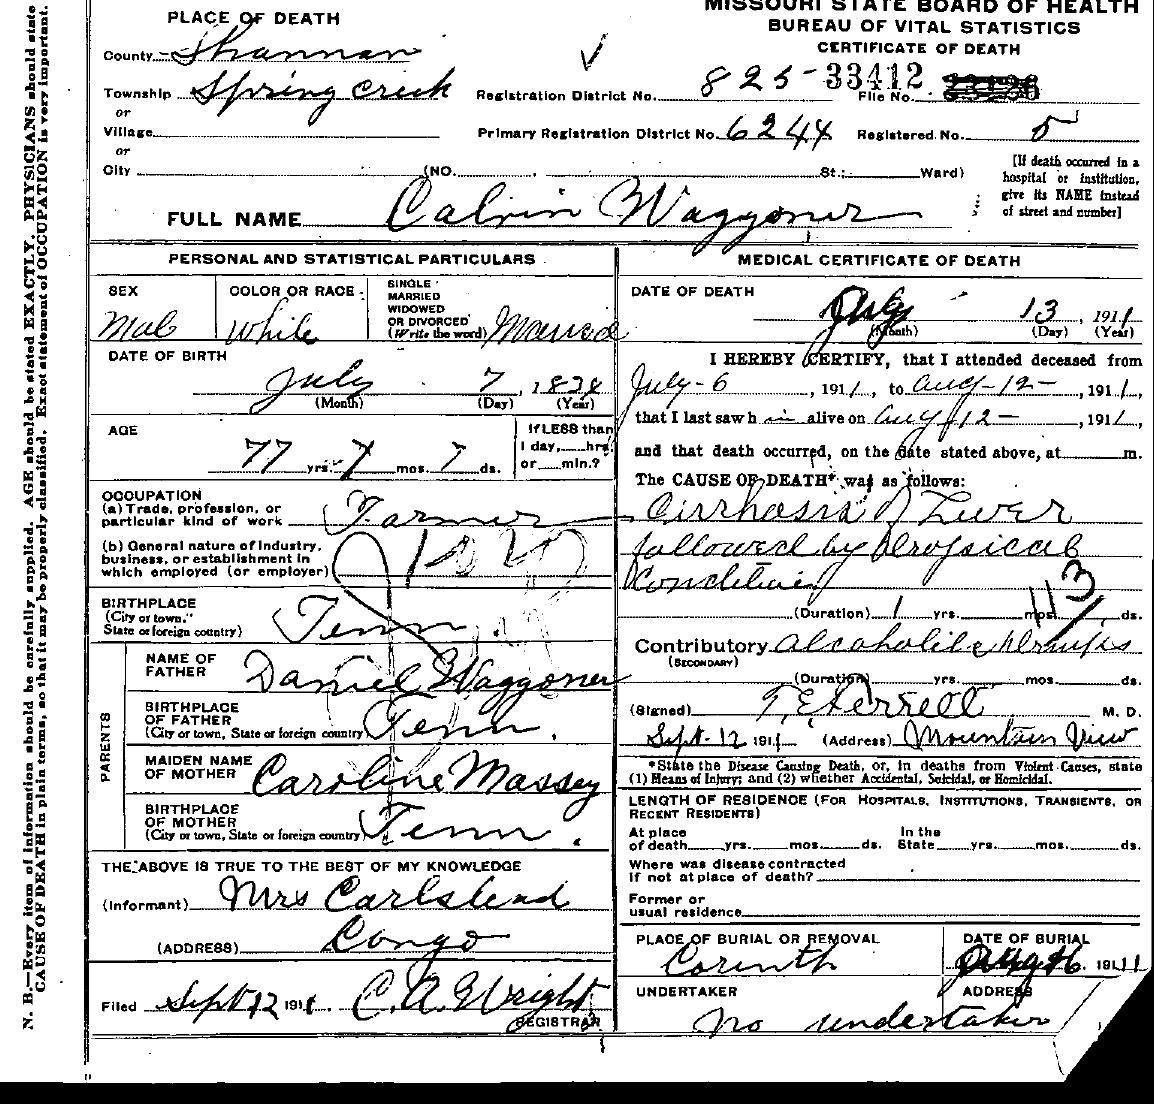 MISSOURI STATE BOARD OF HEALTH
BUREAU OF VITAL STATISTICS
CERTIFICATE OF DEATH
PLACE OF DEATH
County Shannan
Township Spring Creek
or
Village
or
City (NO. St.; Ward)
Registration District No. 825 33412 File No.
Primary Registration District No. 6244 Registered No. 5
[If death occurred in a
hospital or institution,
give its NAME instead
of street and number]
FULL NAME Calvin Waggoner
PERSONAL AND STATISTICAL PARTICULARS
SEX
Male
COLOR OR RACE
White
SINGLE
MARRIED
WIDOWED
OR DIVORCED
(Write the word) Married
DATE OF BIRTH
July 7, 1834
(Month) (Day) (Year)
AGE
77 yrs. mos. 7 ds.
If LESS than
1 day, hrs.
or min.?
OCCUPATION
(a) Trade, profession, or
particular kind of work Farmer
(b) General nature of industry,
business, or establishment in
which employed (or employer)
BIRTHPLACE
(City or town,
State or foreign country) Tenn.
PARENTS
NAME OF
FATHER Daniel Waggoner
BIRTHPLACE
OF FATHER
(City or town, State or foreign country) Tenn.
MAIDEN NAME
OF MOTHER Caroline Massey
BIRTHPLACE
OF MOTHER
(City or town, State or foreign country) Tenn.
THE ABOVE IS TRUE TO THE BEST OF MY KNOWLEDGE
(Informant) Mrs Carlstead
(ADDRESS) Congo
Filed Sept 12 1911 C. A. Wright
REGISTRAR
MEDICAL CERTIFICATE OF DEATH
DATE OF DEATH
13, 1911
(Month) (Day) (Year)
I HEREBY CERTIFY, that I attended deceased from
July-6, 1911, to Aug-12-, 1911,
that I last saw h im alive on Aug 12-, 1911,
and that death occurred, on the date stated above, at m.
The CAUSE OF DEATH* was as follows:
Cirrhosis of Liver
followed by dropsical
Condition
113
(Duration) 1 yrs. mos. ds.
Contributory
(SECONDARY)
(Duration) yrs. mos. ds.
(Signed) T. E. Ferrell M. D.
Sept-12 1911 (Address) Mountain View
*State the Disease Causing Death, or, in deaths from Violent Causes, state
(1) Means of Injury; and (2) whether Accidental, Suicidal, or Homicidal.
LENGTH OF RESIDENCE (FOR HOSPITALS, INSTITUTIONS, TRANSIENTS, OR
RECENT RESIDENTS)
At place In the
of death yrs. mos. ds. State yrs. mos. ds.
Where was disease contracted
If not at place of death?
Former or
usual residence
PLACE OF BURIAL OR REMOVAL
Corinth
DATE OF BURIAL
1911
UNDERTAKER
ADDRESS
No undertaker
N. B.—Every item of information should be carefully supplied. AGE should be stated EXACTLY. PHYSICIANS should state
CAUSE OF DEATH in plain terms, so that it may be properly classified. Exact statement of OCCUPATION is very important.